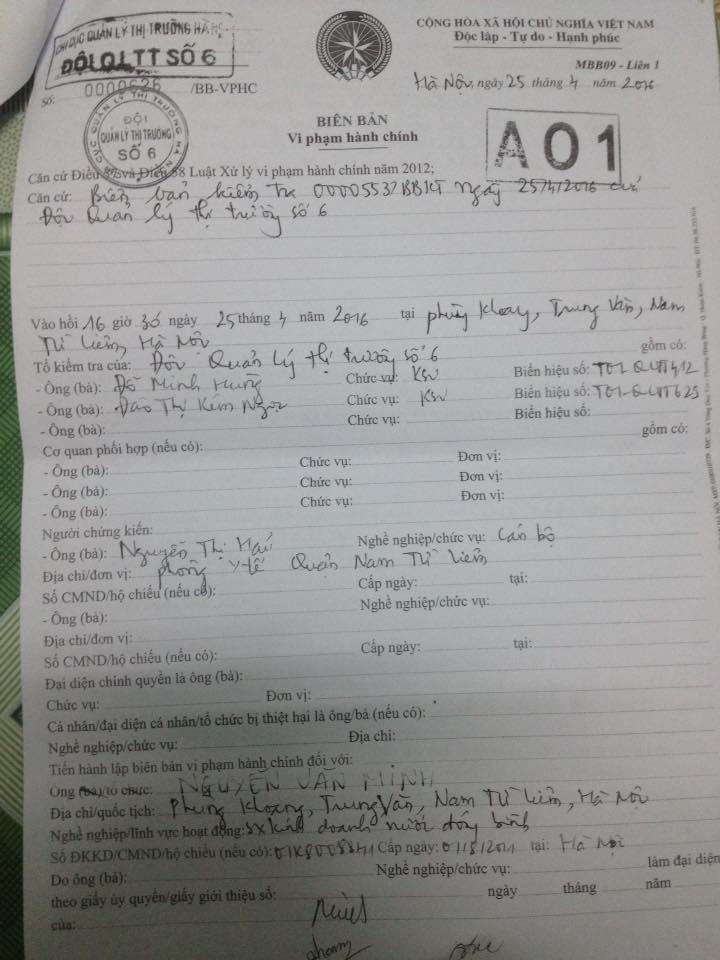 CHI CỤC QUẢN LÝ THỊ TRƯỜNG HÀ
ĐỘI QLTT SỐ 6
CỘNG HÒA XÃ HỘI CHỦ NGHĨA VIỆT NAM
Độc lập - Tự do - Hạnh phúc
MBB09 - Liên 1
Số: 0000626 /BB-VPHC
Hà Nội, ngày 25 tháng 4 năm 2016
CHI CỤC QUẢN LÝ THỊ TRƯỜNG HÀ N
ĐỘI
QUẢN LÝ THỊ TRƯỜNG
SỐ 6
BIÊN BẢN
Vi phạm hành chính
A01
Căn cứ Điều và Điều 58 Luật Xử lý vi phạm hành chính năm 2012;
Căn cứ: Biên bản kiểm tra 00005532BBKT ngày 25/4/2016 của
Đội Quản lý thị trường số 6
Vào hồi 16 giờ 30 ngày 25 tháng 4 năm 2016 tại phùng khoang, Trung Văn, Nam
Từ Liêm, Hà Nội
Tổ kiểm tra của: Đội Quản Lý thị trường số 6 gồm có:
- Ông (bà): Đỗ Minh Hưng Chức vụ: KSV Biển hiệu số: T01-QLTT412
- Ông (bà): Đào Thị Kim Ngọc Chức vụ: KSV Biển hiệu số: T01-QLTT625
- Ông (bà): Chức vụ: Biển hiệu số:
Cơ quan phối hợp (nếu có): gồm có:
- Ông (bà): Chức vụ: Đơn vị:
- Ông (bà): Chức vụ: Đơn vị:
- Ông (bà): Chức vụ: Đơn vị:
Người chứng kiến:
- Ông (bà): Nguyễn Thị Hải Nghề nghiệp/chức vụ: Cán bộ
Địa chỉ/đơn vị: phòng Y-tế Quận Nam Từ Liêm
Số CMND/hộ chiếu (nếu có): Cấp ngày: tại:
- Ông (bà): Nghề nghiệp/chức vụ:
Địa chỉ/đơn vị:
Số CMND/hộ chiếu (nếu có): Cấp ngày: tại:
Đại diện chính quyền là ông (bà):
Chức vụ: Đơn vị:
Cá nhân/đại diện cá nhân/tổ chức bị thiệt hại là ông/bà (nếu có):
Nghề nghiệp/chức vụ: Địa chỉ:
Tiến hành lập biên bản vi phạm hành chính đối với:
Ông (bà)/tổ chức: NGUYỄN VĂN MINH
Địa chỉ/quốc tịch: Phùng Khoang, Trung Văn, Nam Từ Liêm, Hà Nội
Nghề nghiệp/lĩnh vực hoạt động: SX kinh doanh nước đóng bình
Số ĐKKD/CMND/hộ chiếu (nếu có): Cấp ngày: tại: Hà Nội
Do ông (bà): Nghề nghiệp/chức vụ: làm đại diện
theo giấy ủy quyền/giấy giới thiệu số: ngày tháng năm
của: